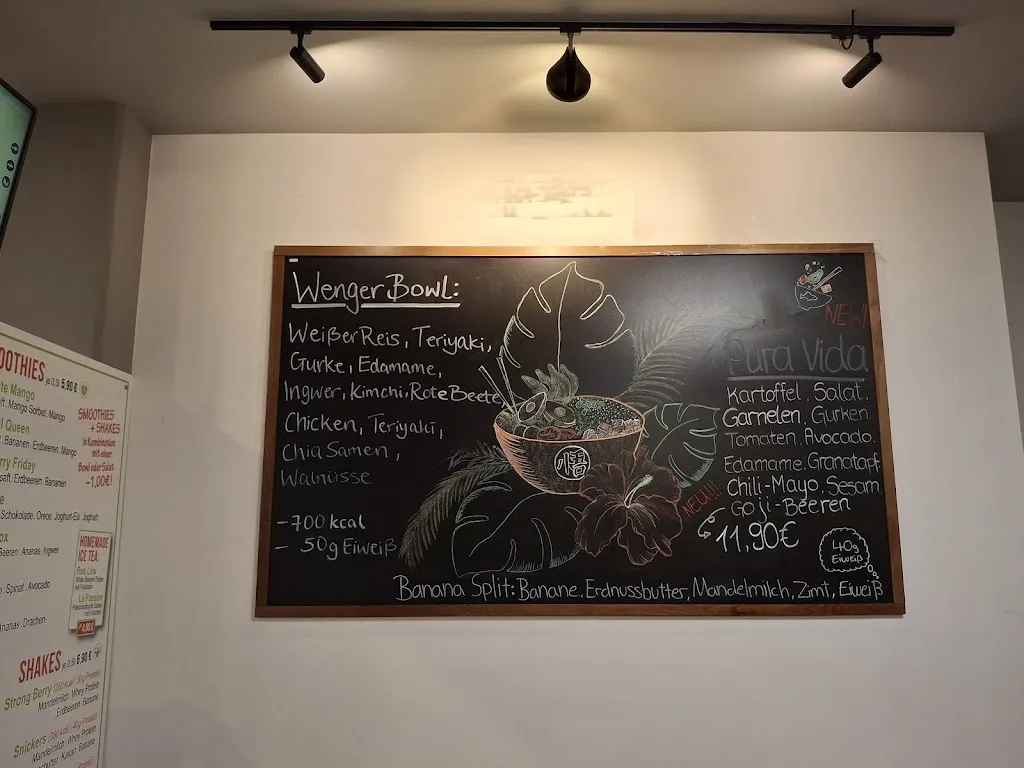 Wenger Bowl:
Weißer Reis, Teriyaki,
Gurke, Edamame,
Ingwer, Kimchi, Rote Beete,
Chicken, Teriyaki,
Chia Samen,
Walnüsse
-700 kcal
- 50g Eiweiß
悟
NEW!
Pura Vida
Kartoffel. Salat.
Garnelen. Gurken.
Tomaten. Avocado.
Edamame. Granatapf.
Chili-Mayo. Sesam
Goji-Beeren
NEW!!!
11,90€
40g
Eiweiß
Banana Split: Banane, Erdnussbutter, Mandelmilch, Zimt, Eiweiß
OOTHIES je 0,5l 5.90 €
te Mango
ft, Mango Sorbet, Mango
l Queen
Bananen, Erdbeeren, Mango
rry Friday
saft, Erdbeeren, Bananen
SMOOTHIES
+ SHAKES
in Kombination
mit einer
Bowl oder Salat
-1,00€!
e
Schokolade, Oreos, Joghurt-Eis, Joghurt
ox
Beeren, Ananas, Ingwer
Spinat, Avocado
Ananas, Drachen-
HOMEMADE
ICE TEA:
La Passion
4,90 €
SHAKES je 0,5l 6.90 €
Strong Berry (250 kcal / 36g Protein)
Mandelmilch, Whey Protein
Erdbeeren, Banane
Snickers (350 kcal / 40g Protein)
Mandelmilch, Whey Protein
butter, Kakao, Banane